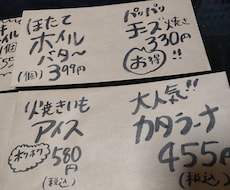 ほたて
ホイル
バター
(個)399円
パリパリ
チーズ焼き
330円
お得!!
焼きいも
アイス
ホクホク
580円
(税込)
大人気!!
カタラーナ
455円
(税込)